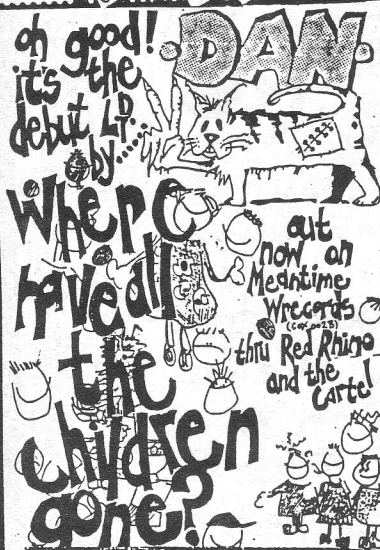 oh good!
it's the
debut LP
by.....
DAN
where
have all
the
children
gone?
out
now on
Meantime
Wrecords
(cox 002B)
thru Red Rhino
and the
cartel